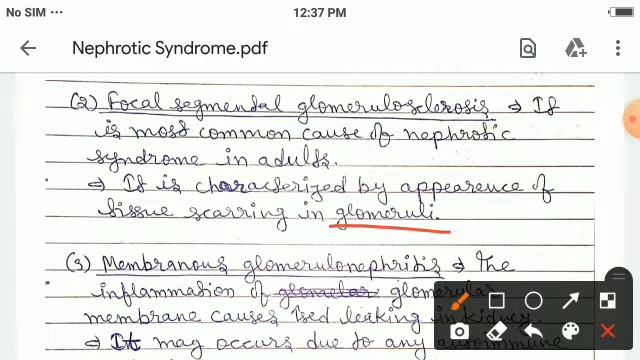 No SIM ...
12:37 PM
Nephrotic Syndrome.pdf
(2) Focal segmental glomerulosclerosis → It
is most common cause of nephrotic
syndrome in adults.
→ It is characterized by appearence of
tissue scarring in glomeruli.
(3) Membranous glomerulonephritis → The
inflammation of glomerular
membrane causes ised leaking in kidney.
→ It may occurs due to any autoimmune